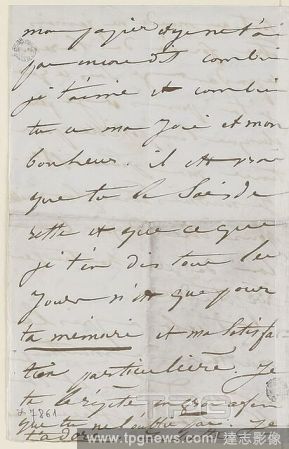 mon papier et je ne t'ai
pas encore dit combien
je t'aime et combien
tu es ma joie et mon
bonheur. il est vrai
que tu le sais de
reste et que ce que
je t'en dis tous les
jours n'est que pour
ta mémoire et ma satisfac
tion particulière. Je
te le répète
que tu ne l'oublies pas. Je
t'adore
7861
TPG
www.tpgnews.com | 達志影像